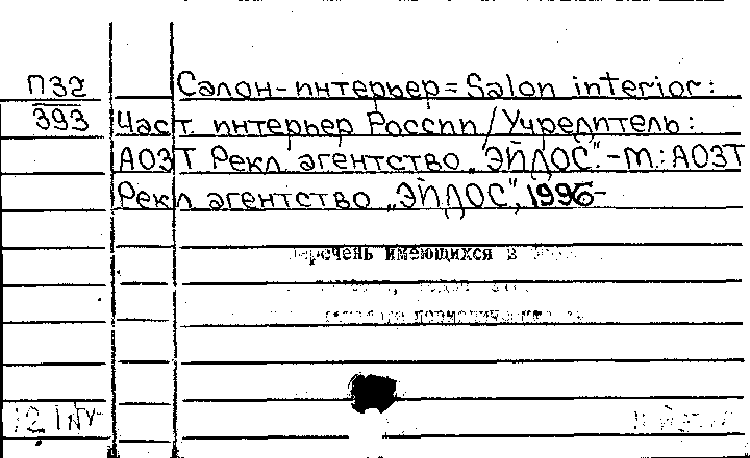 П32 Салон-интерьер = Salon interior:
393 Част интерьер России / Учредитель:
АОЗТ Рекл. агентство „ЭЙДОС". - М.: АОЗТ
Рекл агентство „ЭЙДОС", 1996-
перечень имеющихся в